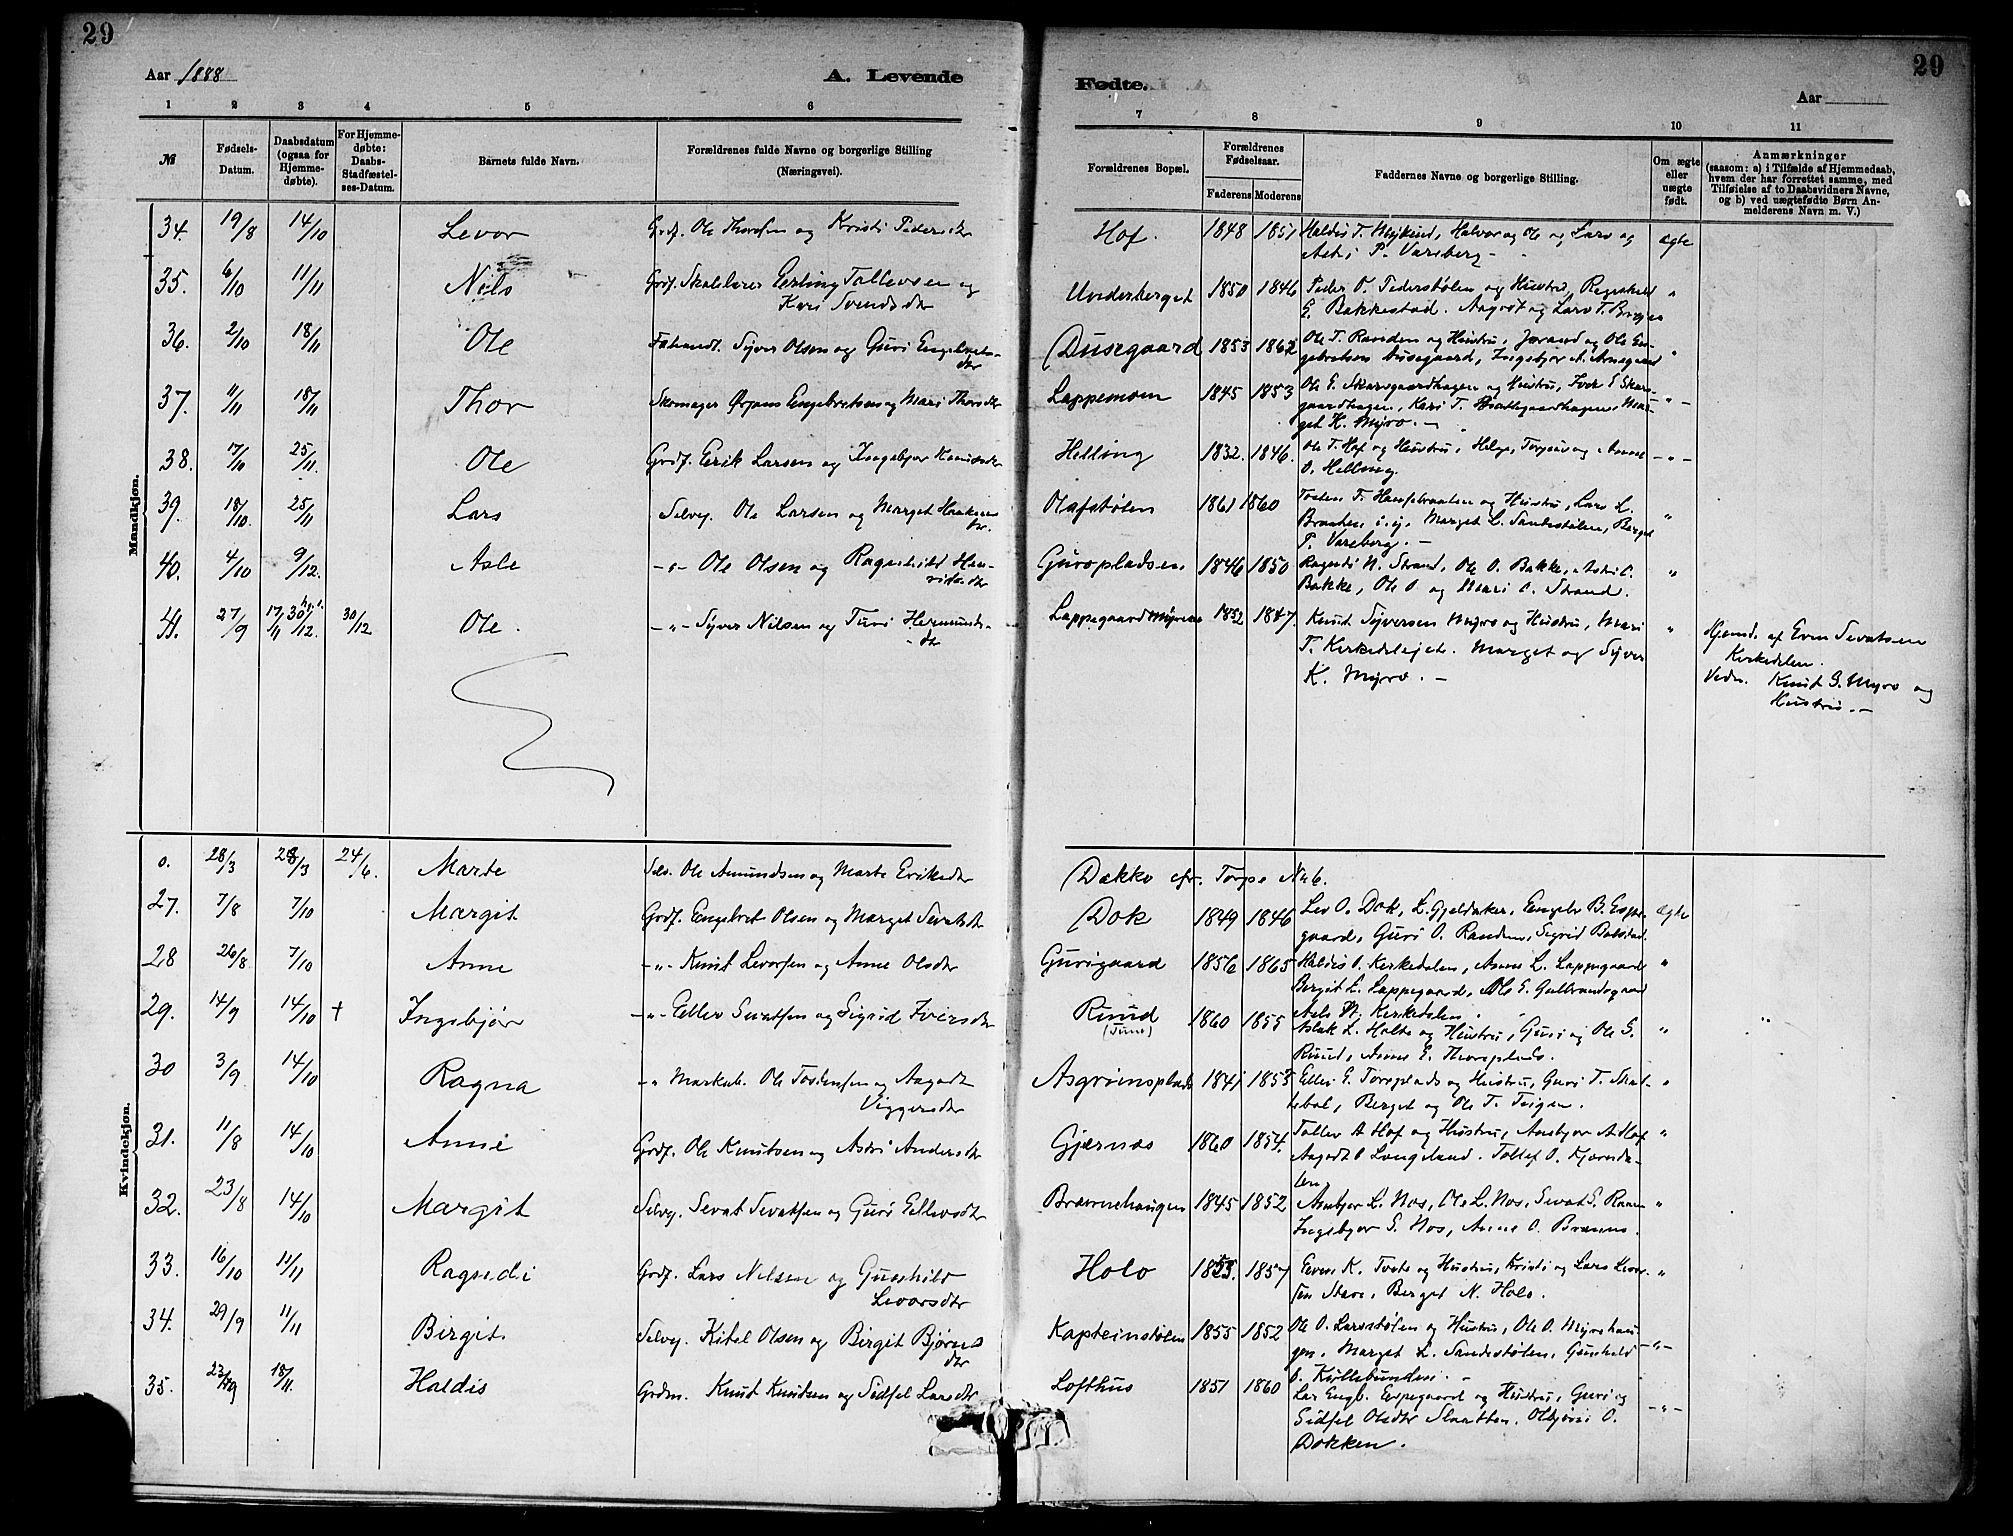 29
29
Aar 1888
A. Levende
Fødte.
Aar
1 2 3 4 5 6
7 8 9 10 11
№
Fødsels-
Datum.
Daabsdatum
(ogsaa for
Hjemme-
døbte).
For Hjemme-
døbte:
Daabs-
Stadfæstel-
ses-Datum.
Barnets fulde Navn.
Forældrenes fulde Navne og borgerlige Stilling
(Næringsvei).
Forældrenes Bopæl.
Forældrenes
Fødselsaar.
Faderens Moderens
Faddernes Navne og borgerlige Stilling.
Om ægte
eller
uægte
født.
Anmærkninger
(saasom: a) i Tilfælde af Hjemmedaab,
hvem der har forrettet samme, med
Tilføielse af to Daabsvidners Navne,
og b) ved uægtefødte Børn An-
melderens Navn m. V.)
Mandkjøn.
34. 19/8 14/10 Levor Grdf. Ole Thorsen og Kristi Pedersdtr Hof. 1848 1851 Haldis T. Myking, Halvor og Ole og Lars og ægte
Astri P. Vareberg -
35. 6/10 11/11 Nils Grdf. Skolelærer Erling Tollevsen og Underberget 1850 1846 Peder O. Pederstølen og Hustru, Ragnhild "
Kari Svendsdtr E. Bakkestad. Aagodt og Lars T.
36. 2/10 18/11 Ole Syver Olsen og Guri Engebrets- Dusegaard 1853 1862 Ole T. Randen og Hustru, Jorand og Ole En- "
dtr gebretsen Dusegaard, Ingebjør A. Arnegaard
37. 11/11 18/11 Thor Skomager Ørjans Engebretsen og Mari Thorsdtr Lappemoen 1845 1853 Ole E. Skarsgaardhagen og Hustru, Iver E Skars- -"-
gaardhagen, Kari T. Brattegaardhagen, Mar-
get K. Myro. -
38. 17/10 25/11 Ole Grdf. Erik Larsen og Ingebjør Knudsdtr Helling 1832. 1846. Ole T. Hof og Hustru, Helge, Torgeir og Anne -"-
O. Helling.
39. 18/10. 25/11 Lars Selvej. Ole Larsen og Marget Haakens Olafstølen 1861 1860 Tosten T. Hansebraaten og Hustru, Lars L. "
dtr. Braaten i. ej. Marget L. Sandestølen, Berget
P. Vareberg. -
40. 4/10 9/12. Asle -"- Ole Olsen og Ragnhild Hen- Guropladsen 1846 1850 Ragndi N. Strand, Ole O. Bakke, Astri O. "
riksdtr Bakke, Ole O. og Mari O. Strand.
41. 27/9 17/11 30/12. 30/12 Ole. -"- Syver Nilsen og Turi Hermunds- Lappegaardmyrene 1852 1847. Knud Syversen Myro og Hustru, Mari "
-dtr T. Kirkedelsjet. Marget og Syver
K. Myro. -
Hjemd. af Even Sevatsen
Kirkedelen.
Vidn. Knud S. Myro og
Hustru. -
Kvindekjøn.
o. 28/3 28/3 24/6. Marte Selv. Ole Amundsen og Marte Eriksdtr Dokko cfr. Torpe No 6.
27. 7/8 7/10 Margit Grdf. Engebret Olsen og Marget Sevatsdtr Dok 1849 1846 Lev O. Dok, L. Gjeldaker, Engebr B. Espe- ægte
gaard, Guri O. Randen, Sigrid Bakstad.
28 26/8. 7/10 Anne -"- Knut Levorsen og Anne Olsdtr Gurigaard 1856 1865 Haldis O. Kirkedelen, Anne L. Lappegaard "
Birgit L. Lappegaard, Ole E. Gulbrandsgaard
Asle H. Kirkedelen.
29. 14/9 14/10 + Ingebjør -"- Ellev Sevatsen og Sigrid Iversdtr Ruud 1860 1855 Aslak L. Holto og Hustru, Guri og Ole S. "
(Tune) Ruud, Anne E. Thoreplads.
30 3/9 14/10 Ragna -"- Ole Tostensen og Aagodt Asgrimsplads 1841 1853 Ellev E. Toreplads og Hustru, Guri T. Skat- "
Viggersdtr tebol, Berget og Ole T. Teigen.
31. 11/8 14/10 Anne Grdf. Ole Knutsen og Astri Andersdtr Gjærnæs 1860 1854. Tollev A Hof og Hustru, Annbjør A Hof "
Aagodt O Længeland. Tollef O. Kjørsda-
len.
32. 23/8 14/10 Margit Selvej. Sevat Sevatsen og Guri Ellevsdtr Brænnehaugen 1845 1852 Annbjør L. Nos, Ole L. Nos, Sevat S. Raaen "
Ingebjør S. Nos, Anne O. Brænno.
33. 16/10 11/11 Ragndi Grdf. Lars Nilsen og Gunhild Holo 1853. 1857 Even K. Tveto og Hustru, Kristi og Lars Levor- "
Levorsdtr sen Stave, Berget N. Holo.
34. 29/9 11/11 Birgit Selvej. Kitel Olsen og Birgit Bjørns Kapteinstølen 1855 1852 Ole O. Larsstølen og Hustru, Ole O. Myrohau-
dtr gen, Marget L. Sandestølen, Gunhild -"-
O. Kyllebunden. -
35. 18/11. Haldis Grdm. Knut Knutsen og Sidsel Larsdtr Lofthus 1851 1860 Lar Engb. Espegaard og Hustru, Guri og -"-
Sidsel Olsdtr Slaatten. Olbjør O.
Dokken.